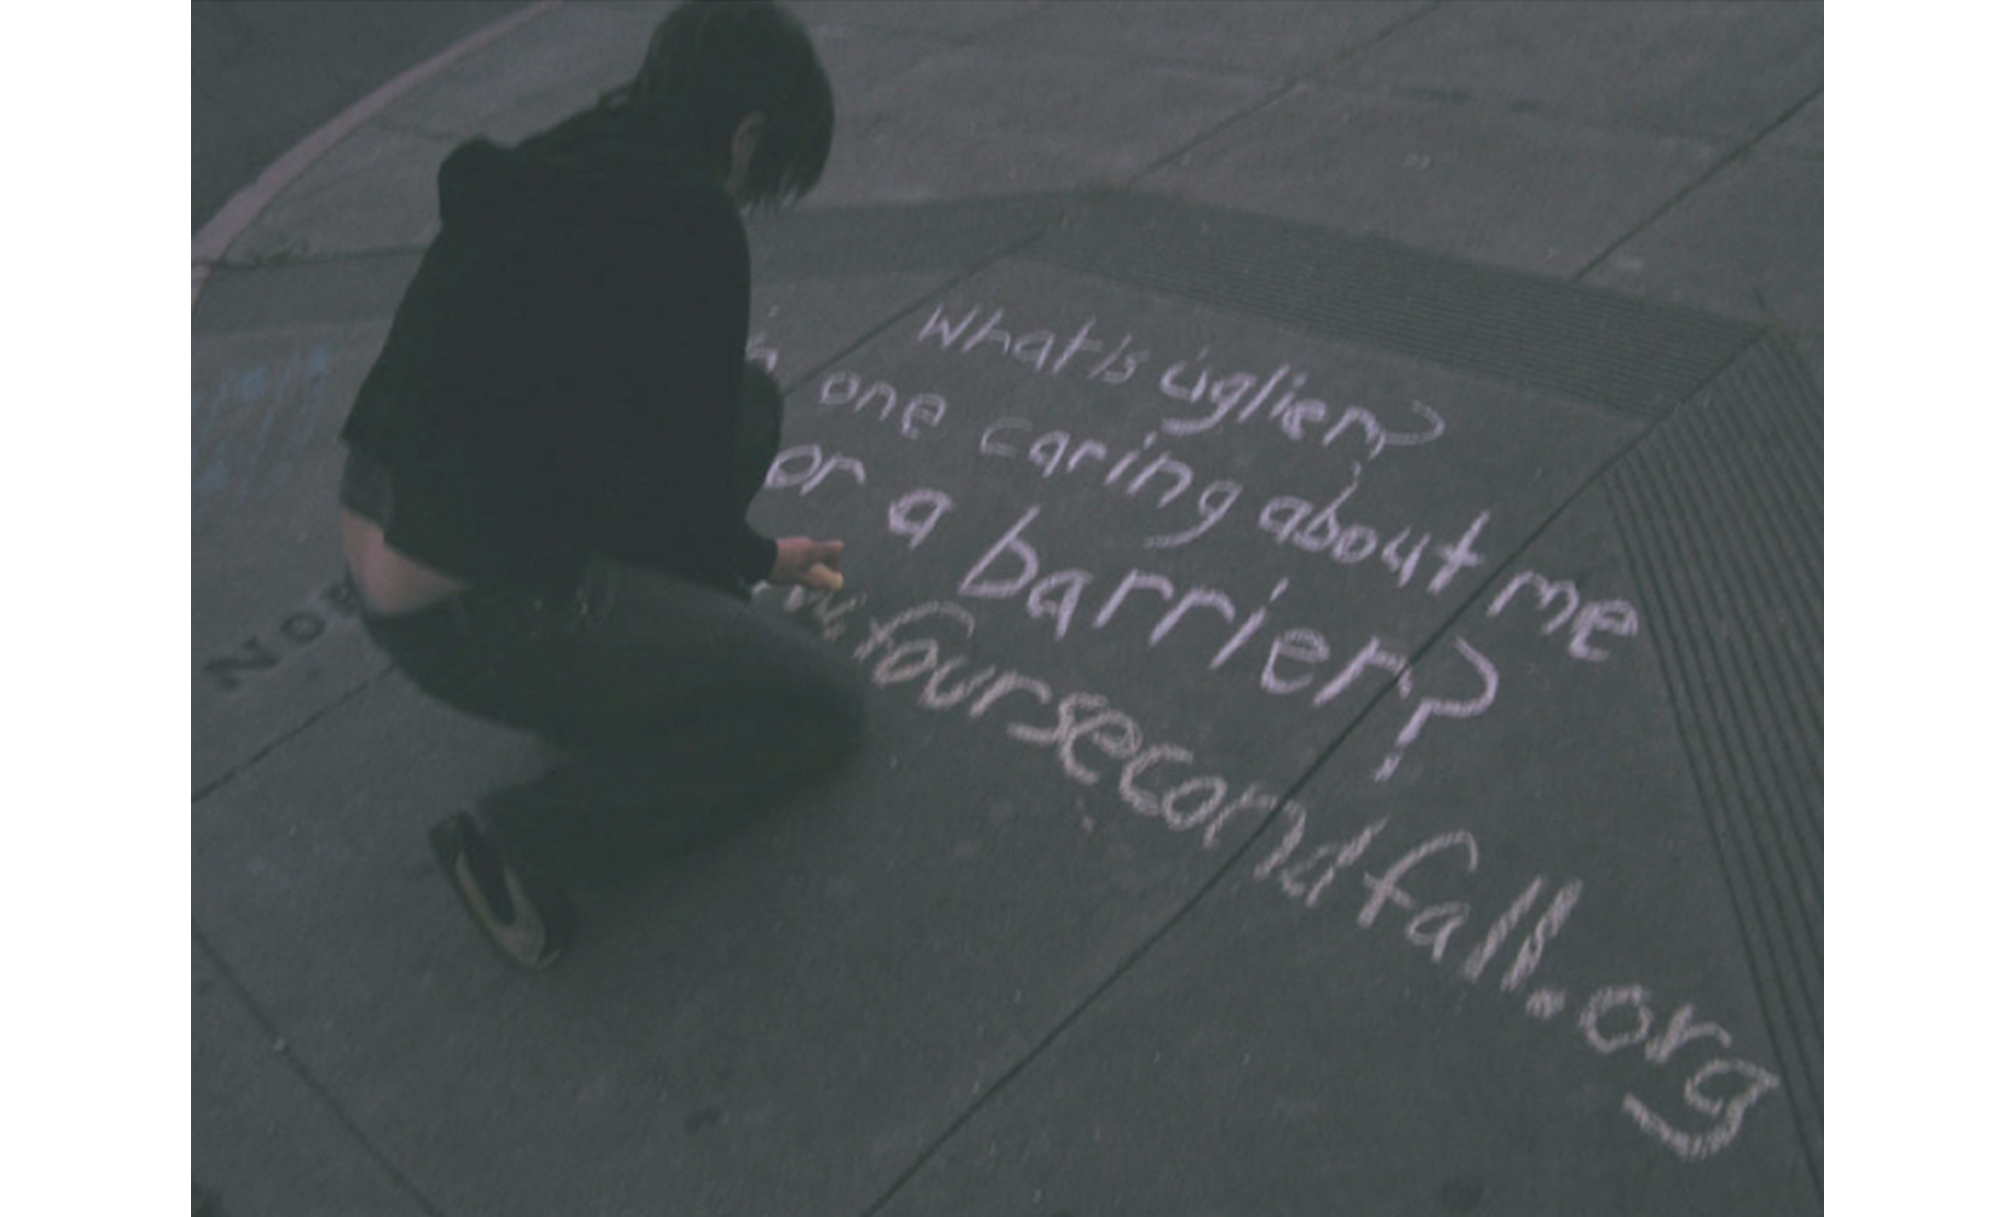 What is uglier?
one caring about me
or a barrier?
foursecondfall.org